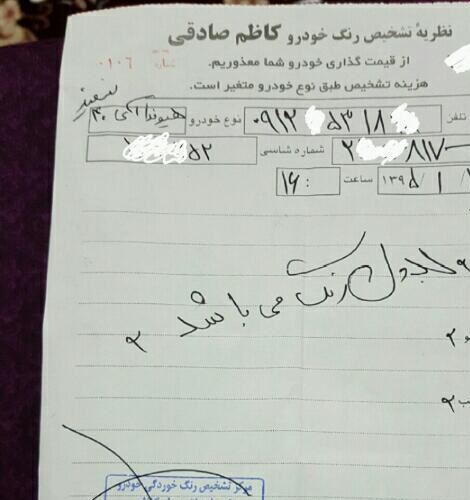 نظریهٔ تشخیص رنگ خودرو کاظم صادقی
از قیمت گذاری خودرو شما معذوریم.
شماره ۰۱۰۶
هزینه تشخیص طبق نوع خودرو متغیر است.
سفید
تلفن ۰۹۱۲ ۵۳۱۸ نوع خودرو هیوندا آی ۳۰
۲ ۸۱۷ شماره شاسی ۵۲
۱۳۹۵/۱/ ساعت ۱۶:
رنگ می باشد
مرکز تشخیص رنگ خوردگی خودرو